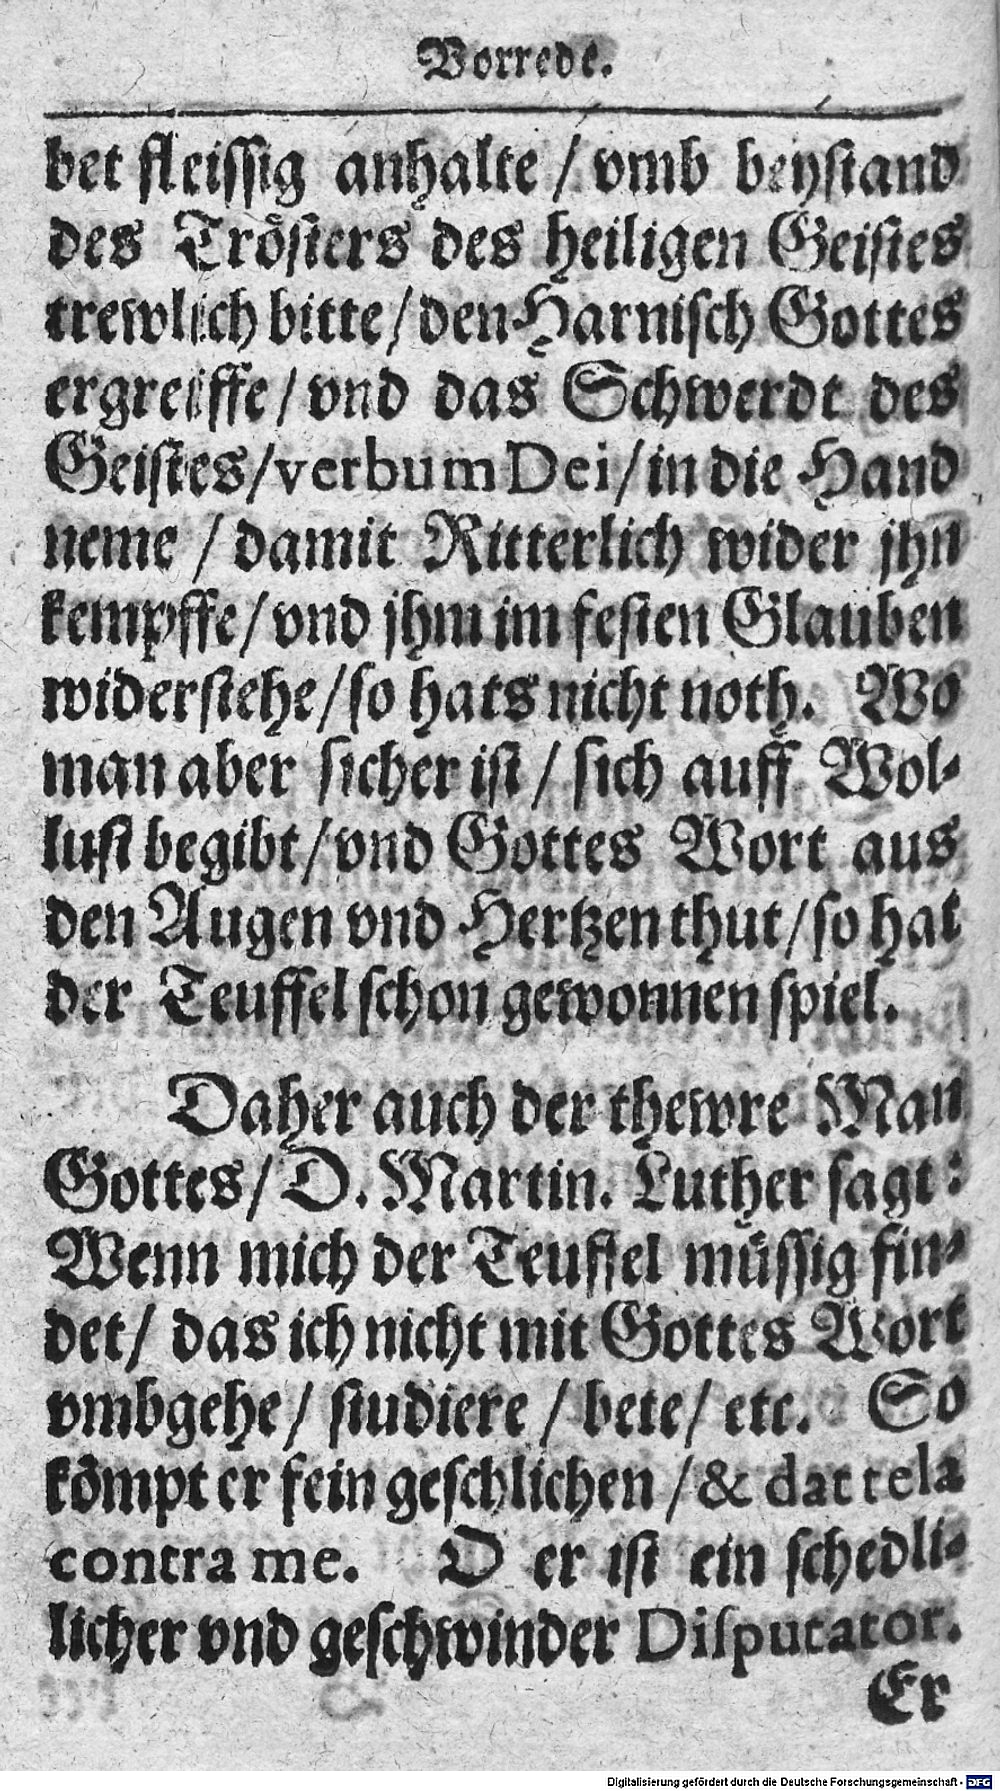 Vorrede.
bet fleissig anhalte / vmb beystand
des Trösters des heiligen Geistes
trewlich bitte / den Harnisch Gottes
ergreiffe / vnd das Schwerdt des
Geistes / verbum Dei / in die Hand
neme / damit Ritterlich wider jhn
kempffe / vnd jhm im festen Glauben
widerstehe / so hats nicht noth. Wo
man aber sicher ist / sich auff Wol-
lust begibt / vnd Gottes Wort aus
den Augen vnd Hertzen thut / so hat
der Teuffel schon gewonnen spiel.
Daher auch der thewre Man
Gottes / D. Martin. Luther sagt:
Wenn mich der Teuffel müssig fin-
det / das ich nicht mit Gottes Wort
vmbgehe / studiere / bete / etc. So
kömpt er fein geschlichen / & dat tela
contra me. O er ist ein schedli-
licher vnd geschwinder Disputator.
Er
Digitalisierung gefördert durch die Deutsche Forschungsgemeinschaft - DFG